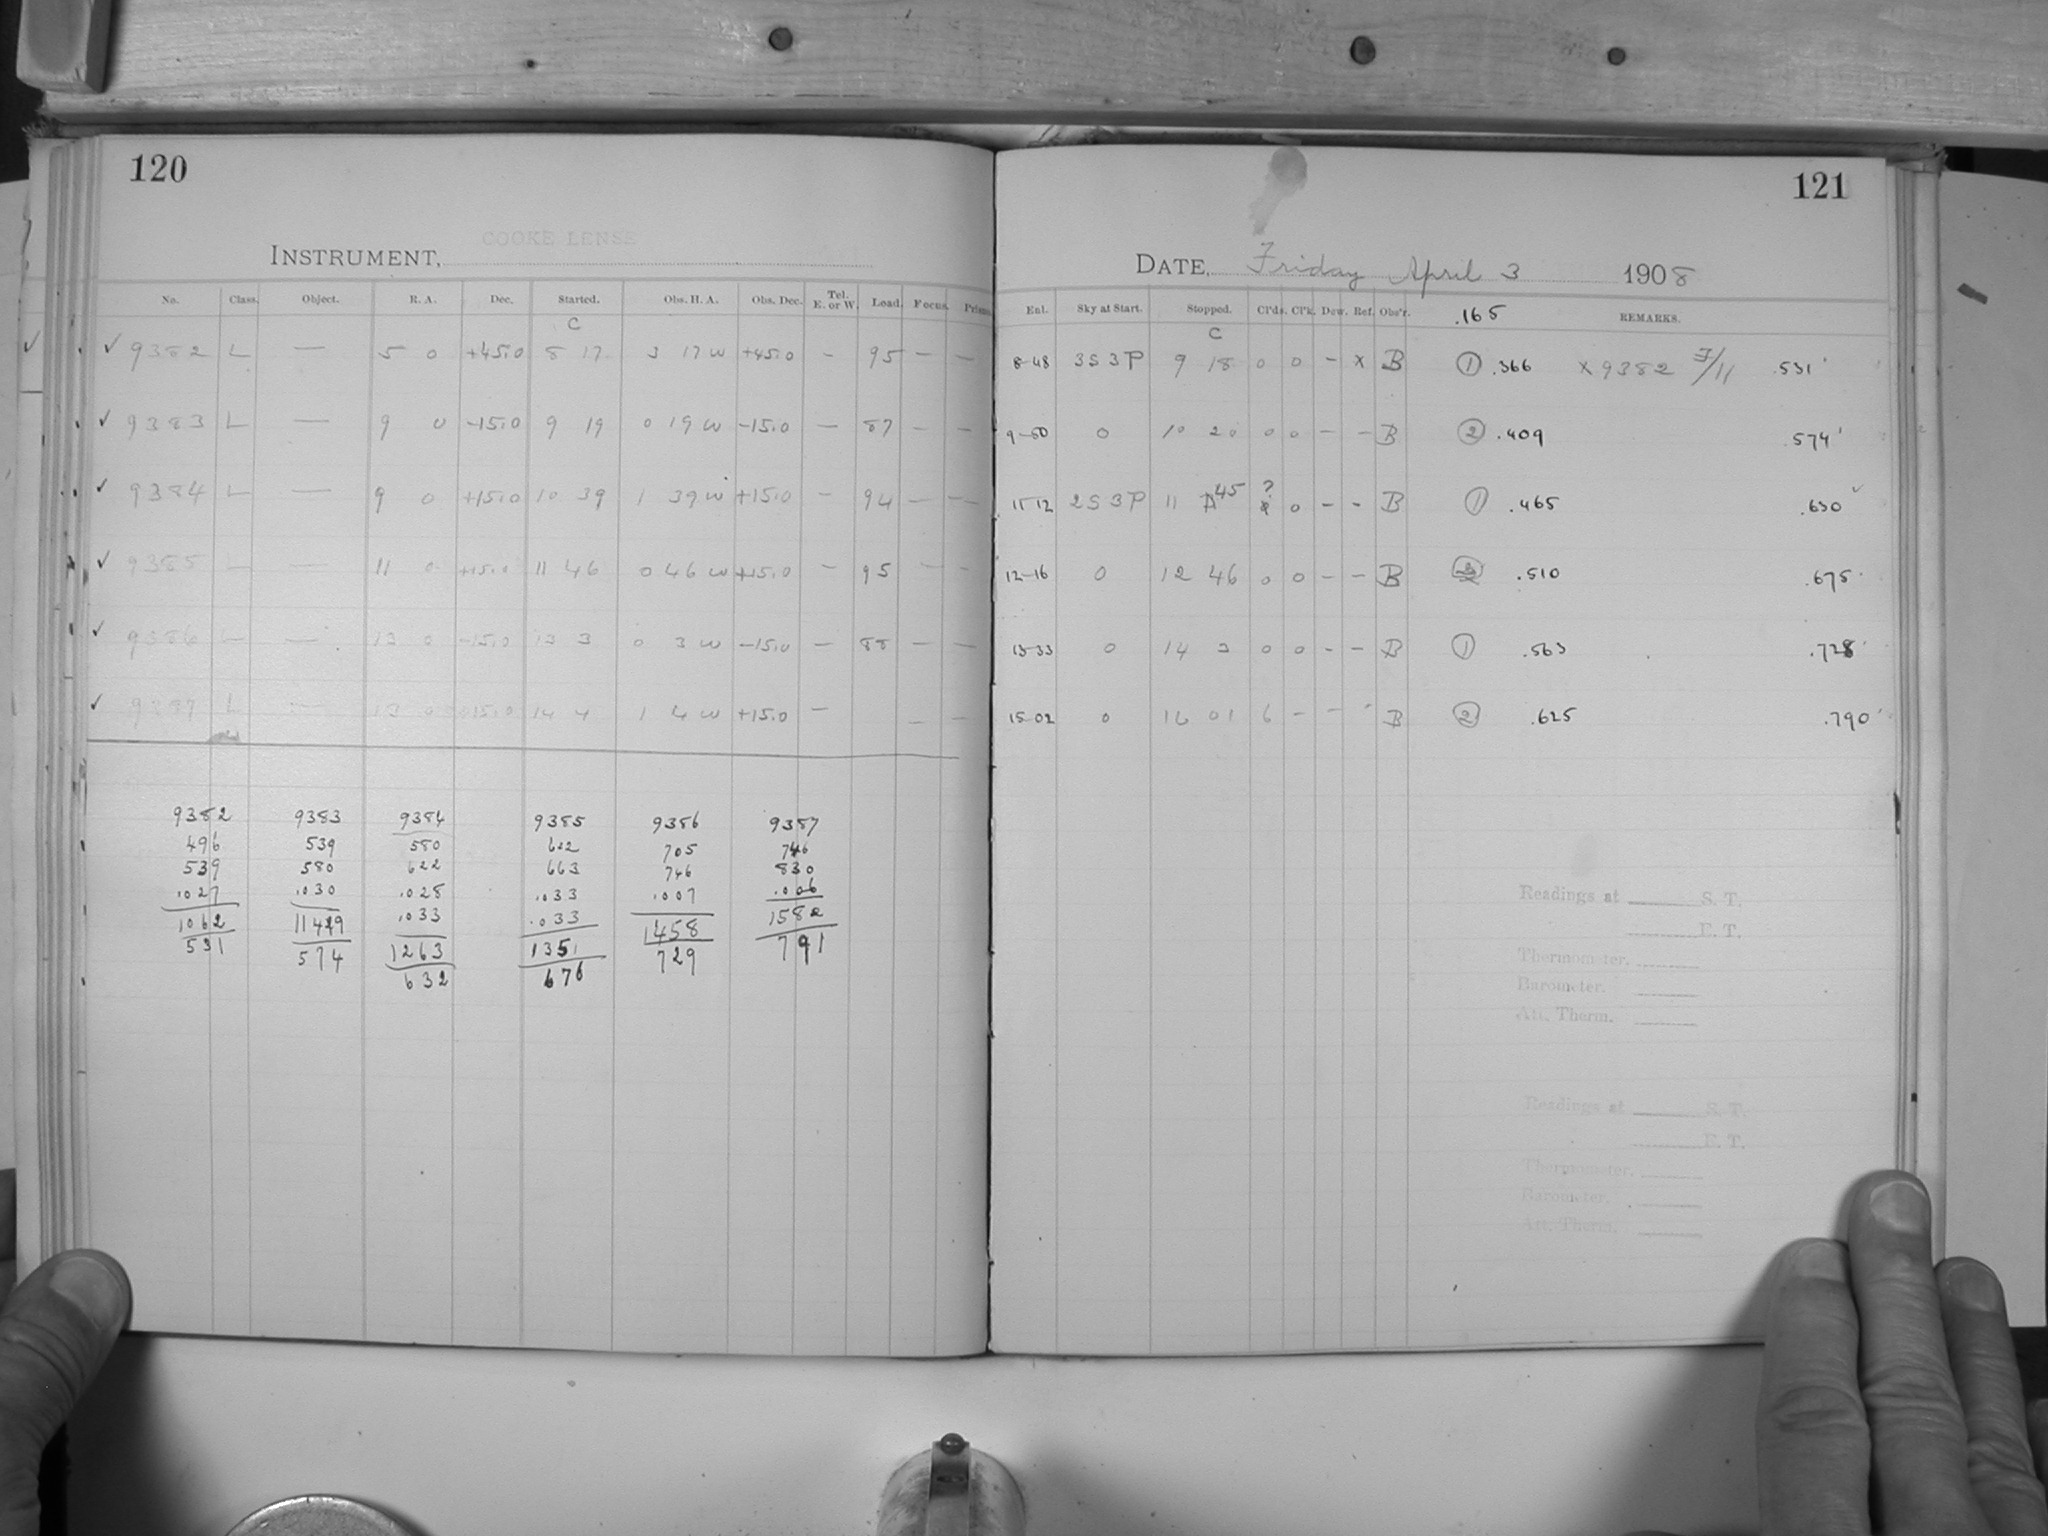 120
COOKE LENSE
INSTRUMENT,
No. Class. Object. R. A. Dec. Started. Obs. H. A. Obs. Dec. Tel. E. or W. Lead. Focus. Prisms
C
✓ 9382 L — 5 0 +45.0 8 17 3 17 W +45.0 - 95 - —
✓ 9383 L — 9 0 -15.0 9 19 0 19 W -15.0 — 87 - —
✓ 9384 L — 9 0 +15.0 10 39 1 39 W +15.0 - 94 — —
✓ 9385 L — 11 0 +15.0 11 46 0 46 W +15.0 - 95 - -
✓ 9386 L — 13 0 -15.0 13 3 0 3 W -15.0 — 88 — —
✓ 9387 L — 13 0 +15.0 14 4 1 4 W +15.0 — — —
9382 9383 9384 9385 9386 9387
496 539 580 622 705 746
539 580 622 663 746 830
.027 .030 .028 .033 .007 .006
1062 1149 .033 .033 1458 1582
531 574 1263 1351 729 791
632 676
121
DATE, Friday April 3 1908
Enl. Sky at Start. Stopped. Cl'ds. Cl'k. Dew. Ref. Obs'r. .165 REMARKS.
C
8-48 3S 3P 9 18 0 0 - x B ① .366 x 9382 F/11 .531
9-50 0 10 20 0 0 - - B ② .409 .574
11 12 2S 3P 11 45 ? 0 - - B ① .465 .630
12-16 0 12 46 0 0 - - B .510 .675
13-33 0 14 3 0 0 - - B ① .563 .728
15-02 0 16 01 6 - - - B ② .625 .790
Readings at S. T.
E. T.
Thermometer.
Barometer.
Att. Therm.
Readings at S. T.
E. T.
Thermometer.
Barometer.
Att. Therm.